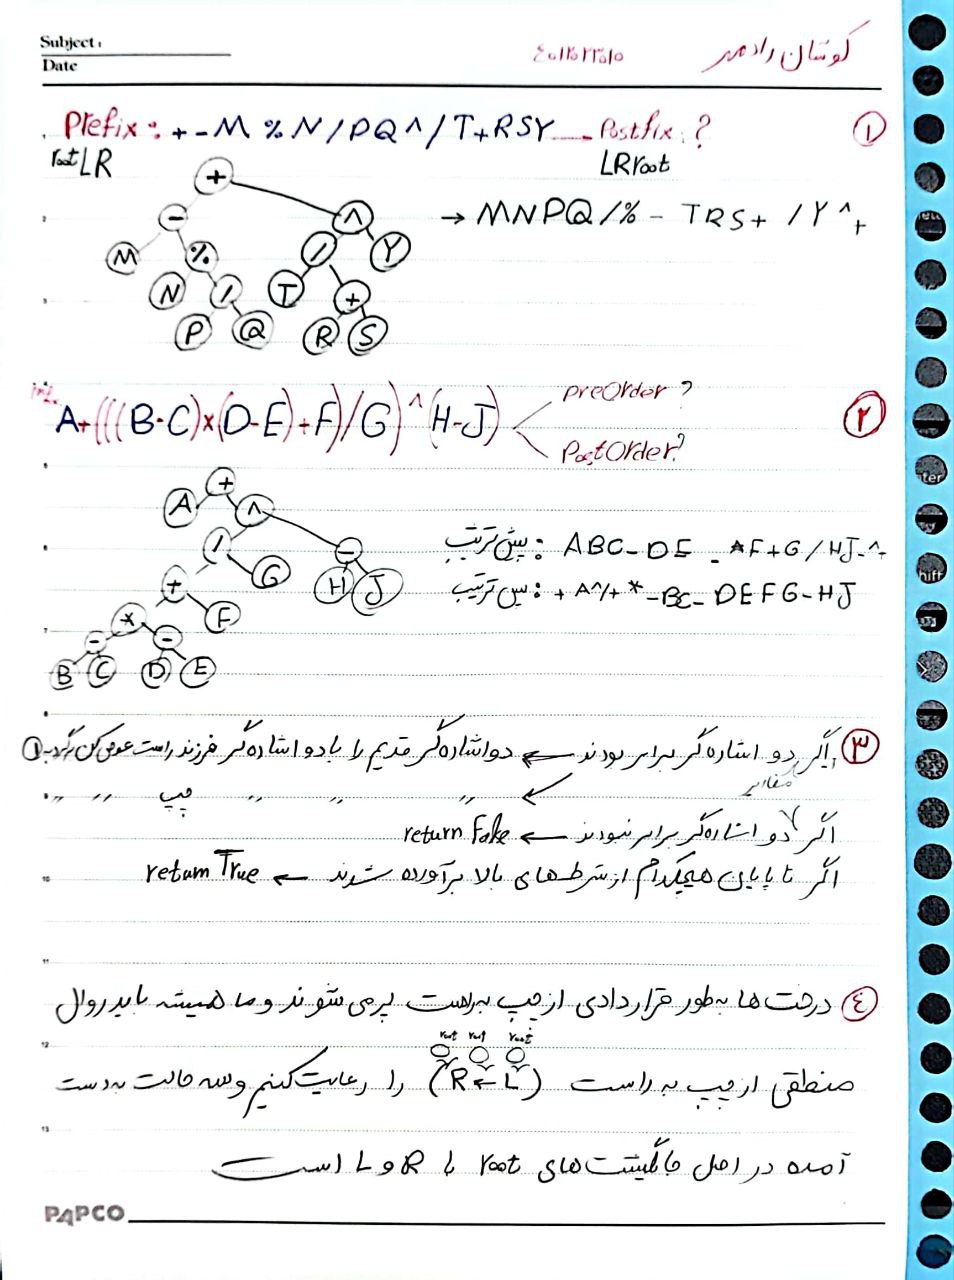 Subject:
Date
کوشان رادمهر
①
Prefix: + - M % N / P Q ^ / T + R S Y — Postfix: ?
root LR
LR root
+
- ^
M % / Y
N / T +
P Q R S
→ M N P Q / % - T R S + / Y ^ +
②
A+(((B-C)×(D-E)+F)/G)^(H-J)
PreOrder ?
PostOrder ?
+
A ^
/ -
+ G H J
* F
- -
B C D E
پیش ترتیب : A B C - D E - * F + G / H J - ^ +
پس ترتیب : + A ^ / + * - B C - D E F G - H J
③
اگر دو اشاره گر برابر بودند ← دو اشاره گر قدیم را با دو اشاره گر فرزند راست عوض کن
" " " " چپ " "
اگر دو اشاره گر برابر نبودند ← return False
اگر تا پایان هیچکدام از شرط های بالا برآورده شدند ← return True
④
درخت ها به طور قراردادی از چپ به راست پر می شوند و ما همیشه باید روال
root root root
منطقی از چپ به راست (R ← L) را رعایت کنیم و سه حالت به دست
آمده در اصل جایگشت های root با R و L است
PAPCO